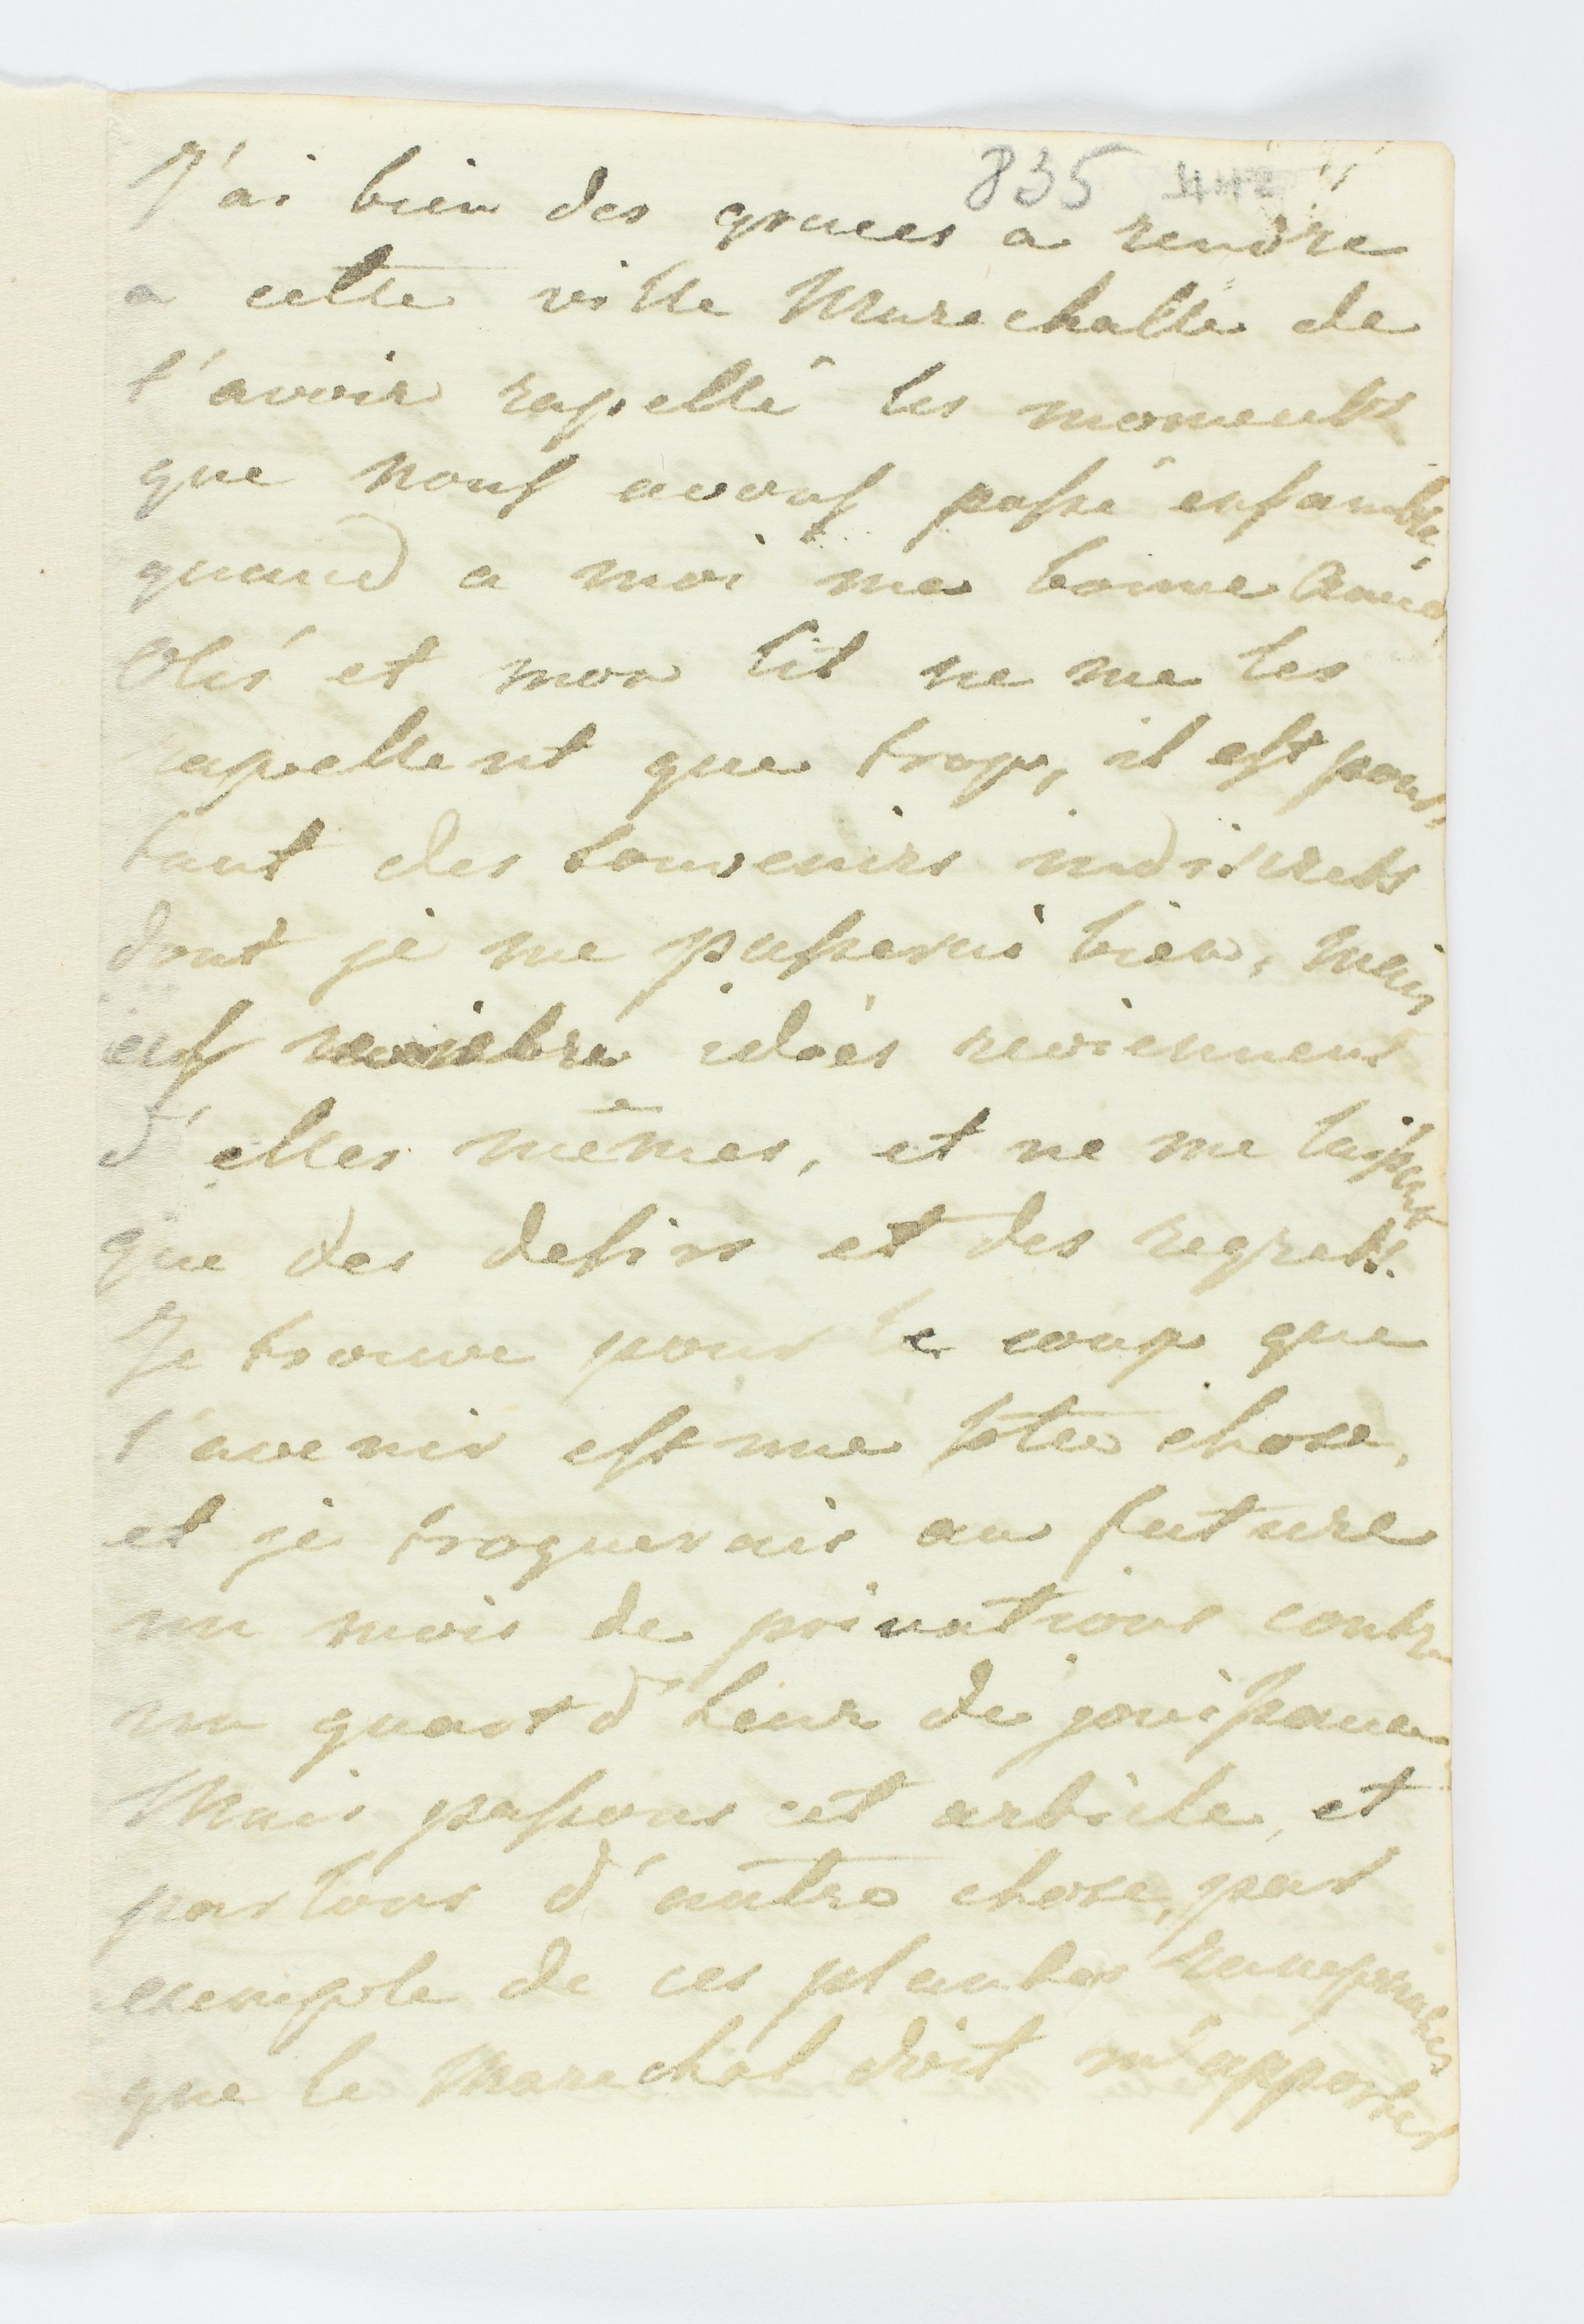 835
J'ai bien des graces a rendre
a cette ville Marechalle de
t'avoir rapellé les moments
que nous avons passé ensamble,
quand a moi ma bonne Amie,
et mon lit ne me les
rapellent que trop, il est pour-
tant des souvenirs indiscrets
dont je me passerai bien, mais
idées reviennent
d'elles mêmes, et ne me laissent
que des desirs et des regrets.
Je trouve pour le coup que
l'avenir est une sote chose,
et je troquerais au future
un mois de privations contre
un quart d'heur de jouissance
Mais passons cet article, et
parlons d'autre chose, par
exemple de ces plantes
que le Marechal doit m'apporter